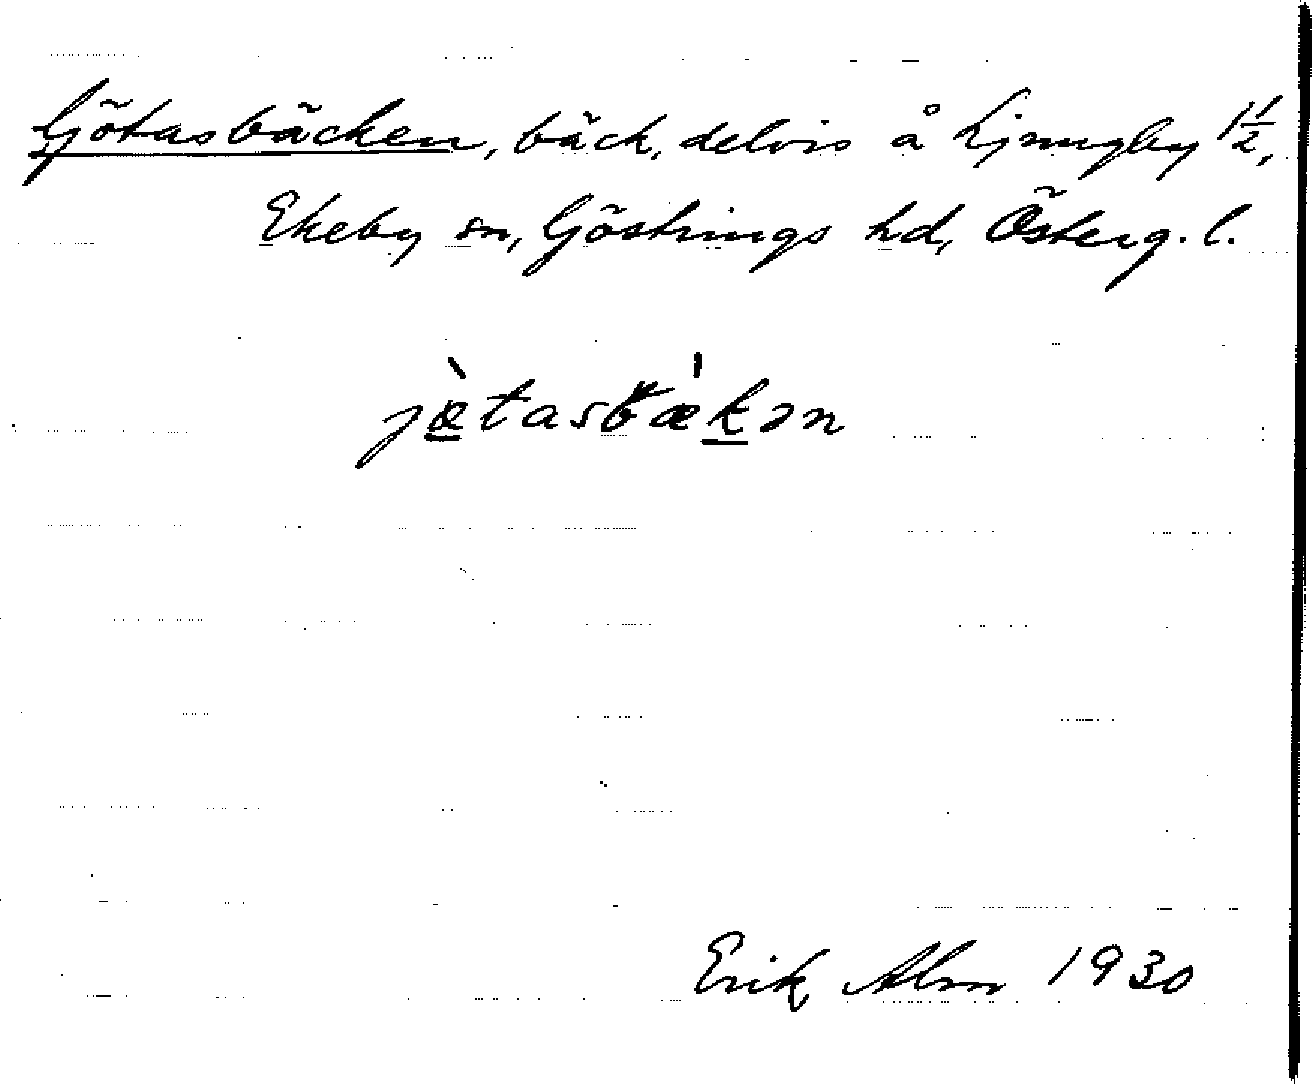 Götasbäcken, bäck, delvis å Ljungby 1 1/2,
Ekeby sn, Göstrings hd, Österg. l.
jæ̀tasbæ̍kən
Erik Alm 1930